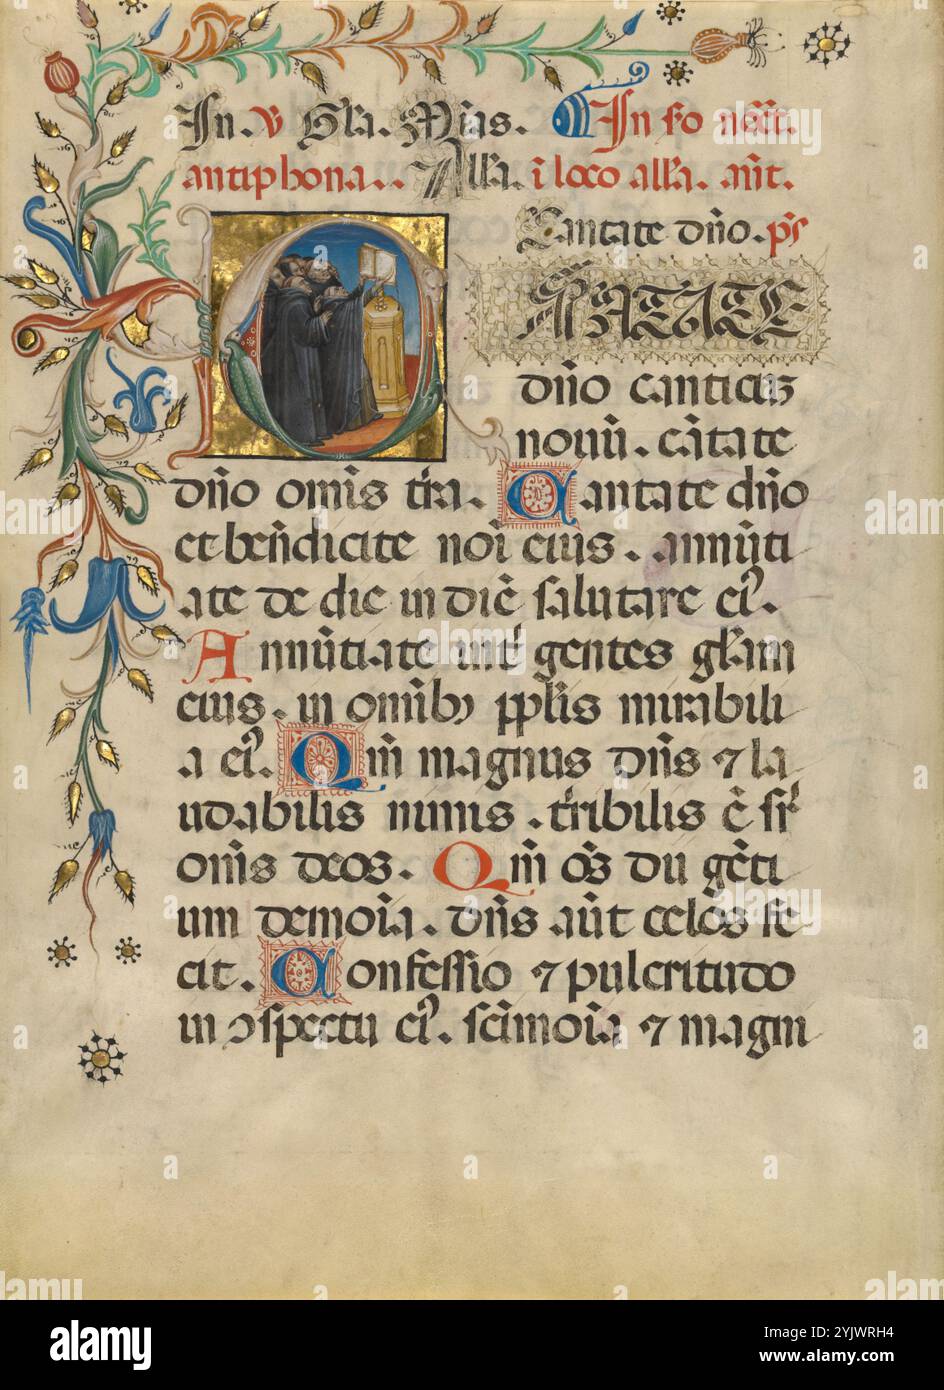 In. v Gl'a. Mīas. In fo nect.
antiphona.. All'a. ī loco all'a. añt.
Cantate dño. ps
ANTATE
dño canticuz
nouū. cātate
dño omīs t'ra. Cantate dño
et beñdicite noī eius. annūti
ate de die in diē salutare ei'.
Annūtiate int' gentes gl'am
eius. in omībꝫ ppl'is mirabili
a ei'. Qm̄ magnus dñs ⁊ la
udabilis nimis. t'ribilis ē sr'
omīs deos. Qm̄ oēs dii gēti
um demoīa. dñs aūt celos fe
cit. Confessio ⁊ pulcritudo
in ↄspectu ei'. sc̄imoīa ⁊ magni
alamy
Image ID: 2YJWRH4
www.alamy.com